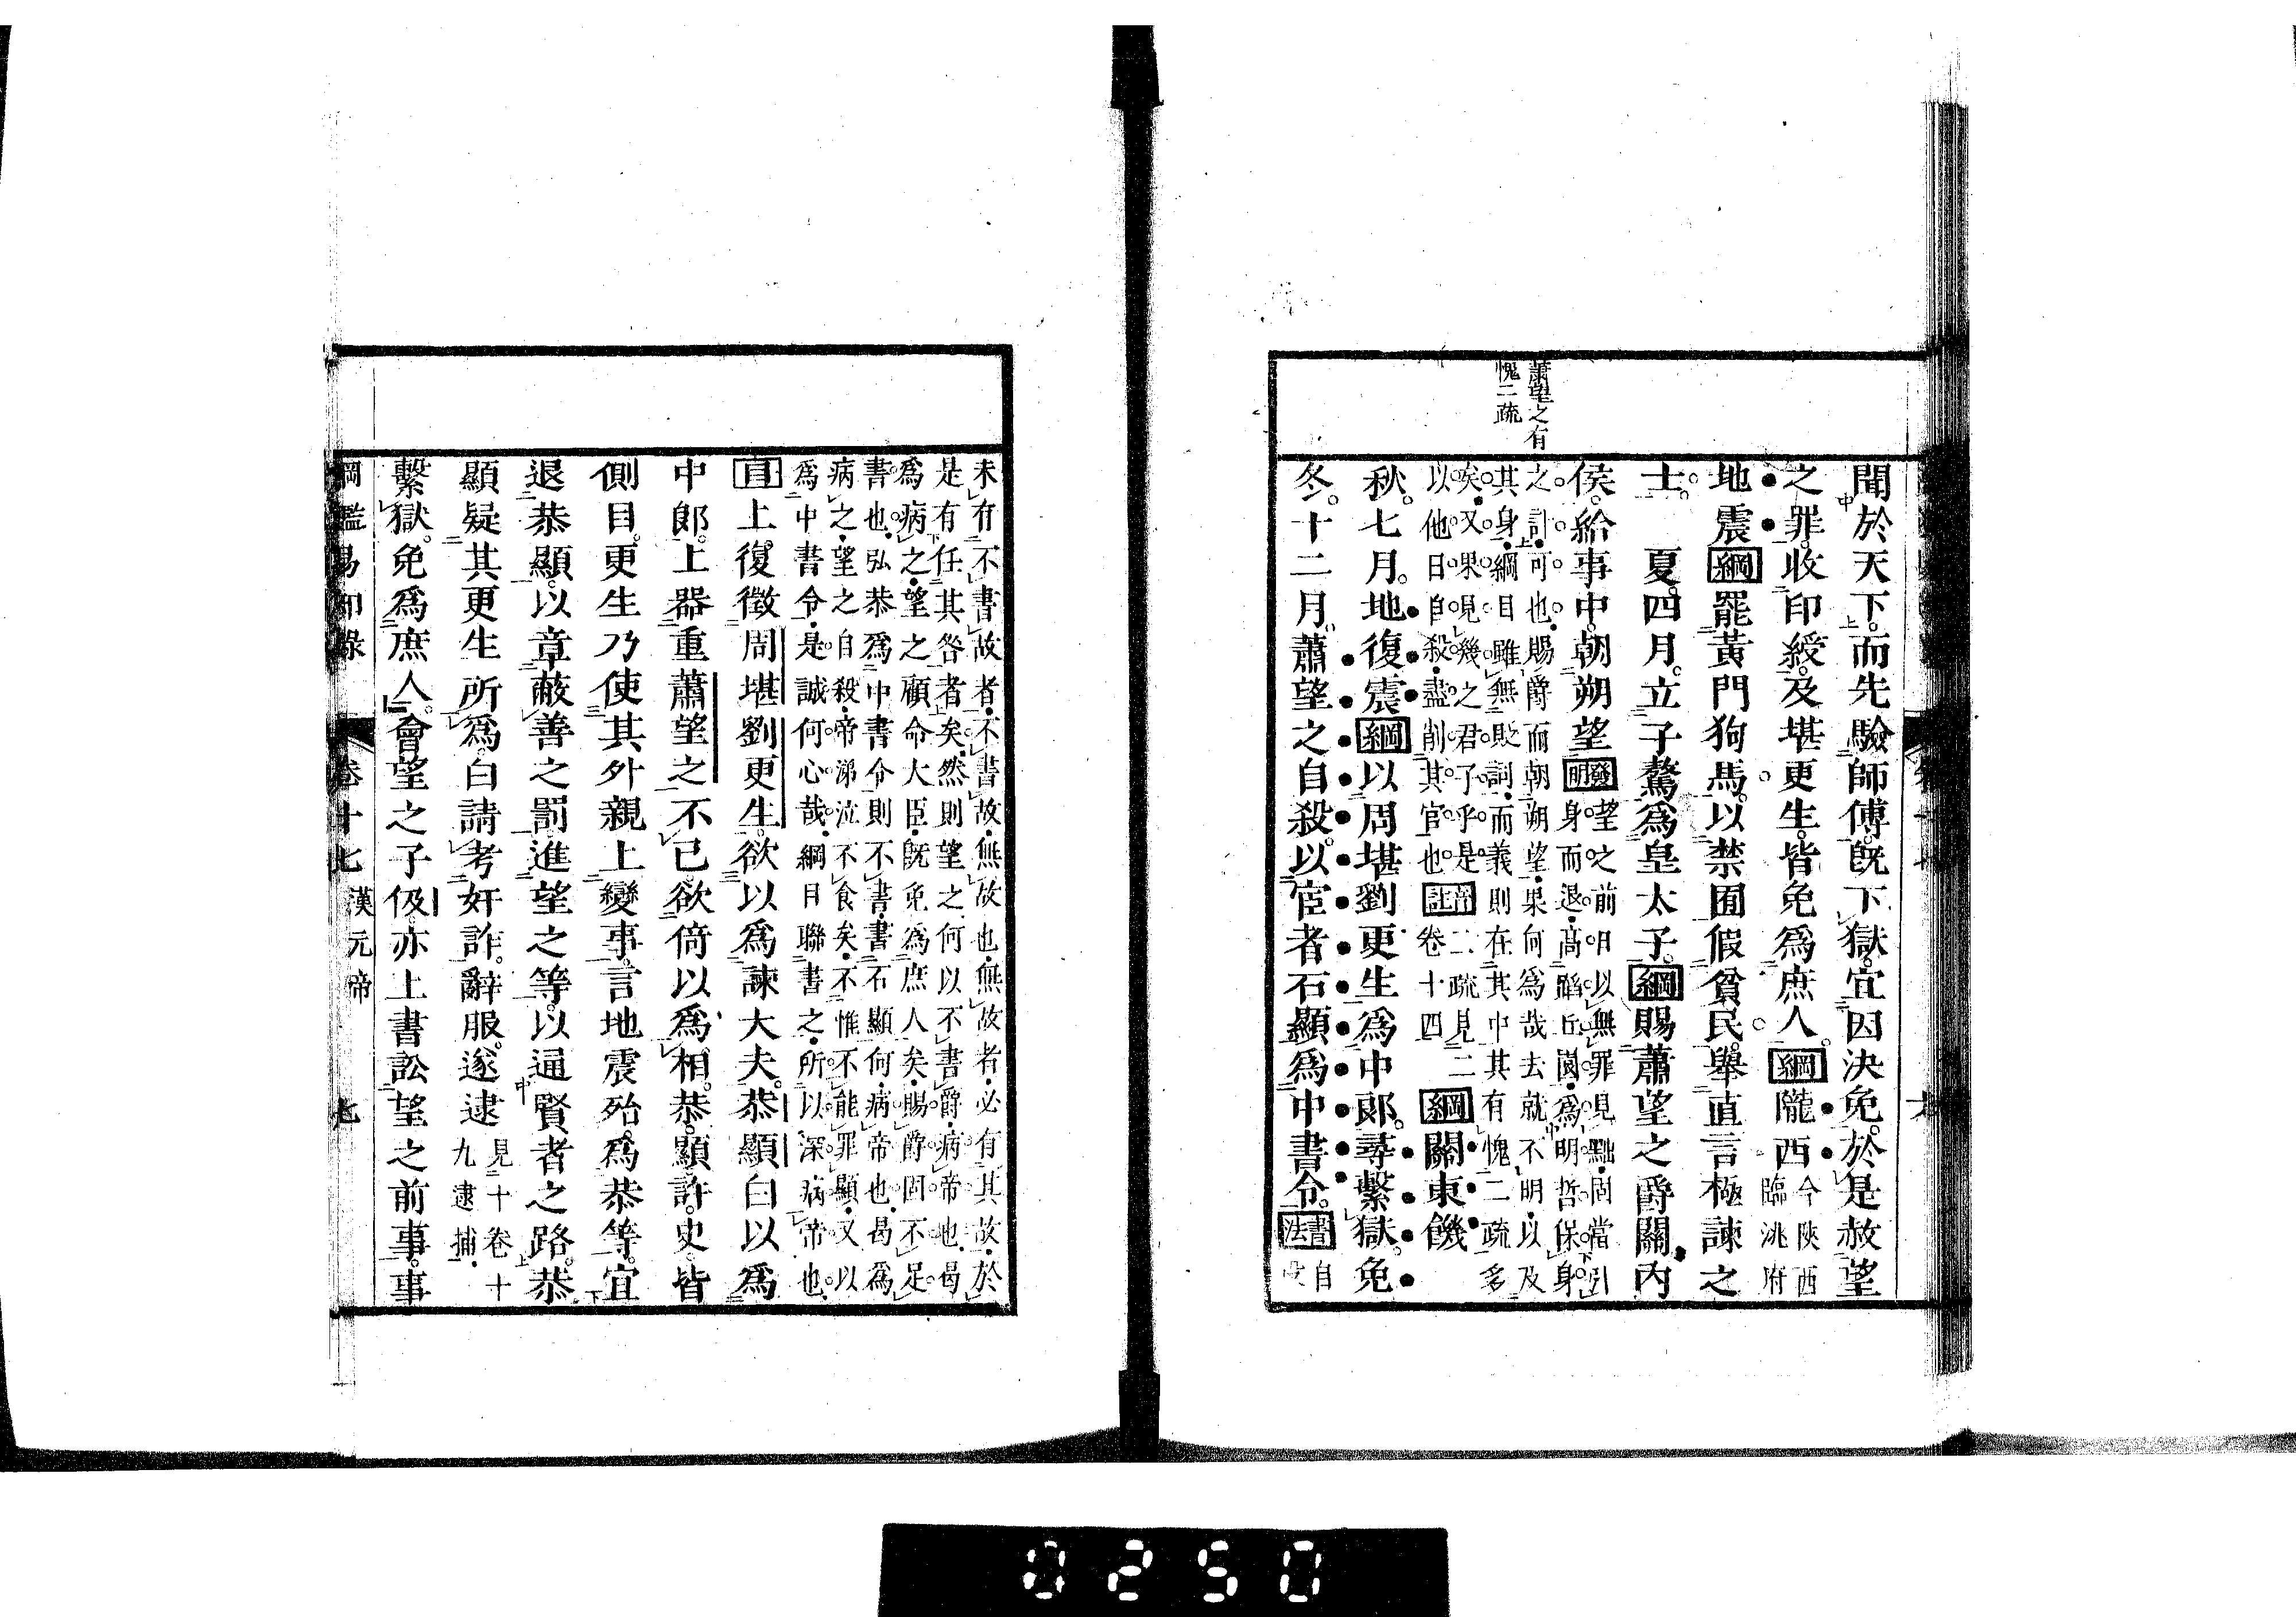 蕭望之有
愧二疏
聞於天下。而先驗師傅。既下獄。宜因決免。於是赦望
之罪。收印綬。及堪更生。皆免爲庶人。綱隴西今陝西臨洮府
地震綱罷黃門狗馬。以禁囿假貧民。舉直言極諫之
士。　夏。四月。立子驁爲皇太子。綱賜蕭望之爵關內
侯。給事中。朝朔望發明望之前日以無罪見黜。固當引
身而退。高蹈丘園。爲明哲保身
之計。可也。賜爵而朝朔望。果何爲哉去就不明。以及
其身。綱目雖無貶詞。而義則在其中其有愧二疏多
矣。又果見幾之君子乎。是
以他日自殺。盡削其官也
註二疏見二
卷十四
綱關東饑
秋。七月。地復震綱以周堪劉更生爲中郎。尋繫獄。免
冬。十二月。蕭望之自殺。以宦者石顯爲中書令。書法自
漢
未有不書故者。不書故。無故也。無故者。必有其故。於
是有任其咎者矣。然則望之何以不書爵。病帝也。曷
爲病之。望之顧命大臣。既免爲庶人矣。賜爵固不足
書也。弘恭爲中書令則不書。書石顯何。病帝也。曷爲
病之。望之自殺。帝涕泣不食矣。不惟不能罪顯。又以
爲中書令。是誠何心哉。綱目聯書之。所以深病帝也。
目上。復徵周堪劉更生。欲以爲諫大夫。恭顯白以爲
中郎。上器重蕭望之不已。欲倚以爲相。恭顯許史皆
側目。更生乃使其外親上變事。言地震殆爲恭等。宜
退恭顯。以章蔽善之罰進望之等。以通賢者之路。恭
顯疑其更生所爲。白請考奸詐。辭服。遂逮見十卷十
九逮捕。
繫獄。免爲庶人。會望之子伋亦上書訟望之前事。事
綱鑑易知錄　卷十七　漢元帝　七